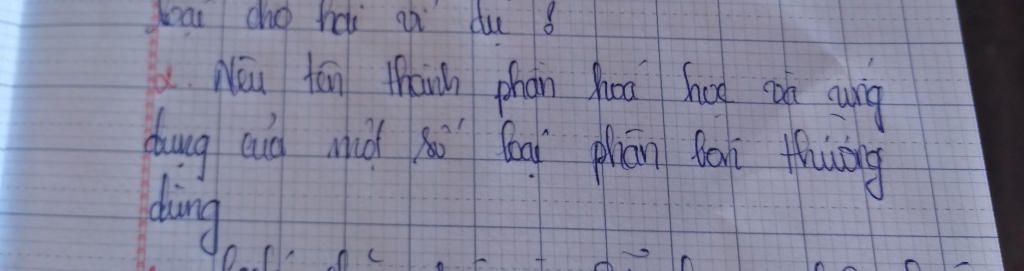 loại cho hai ví dụ ?
d. Nêu tên thành phần hoá học và ứng
dụng của một số loại phân bón thường
dùng